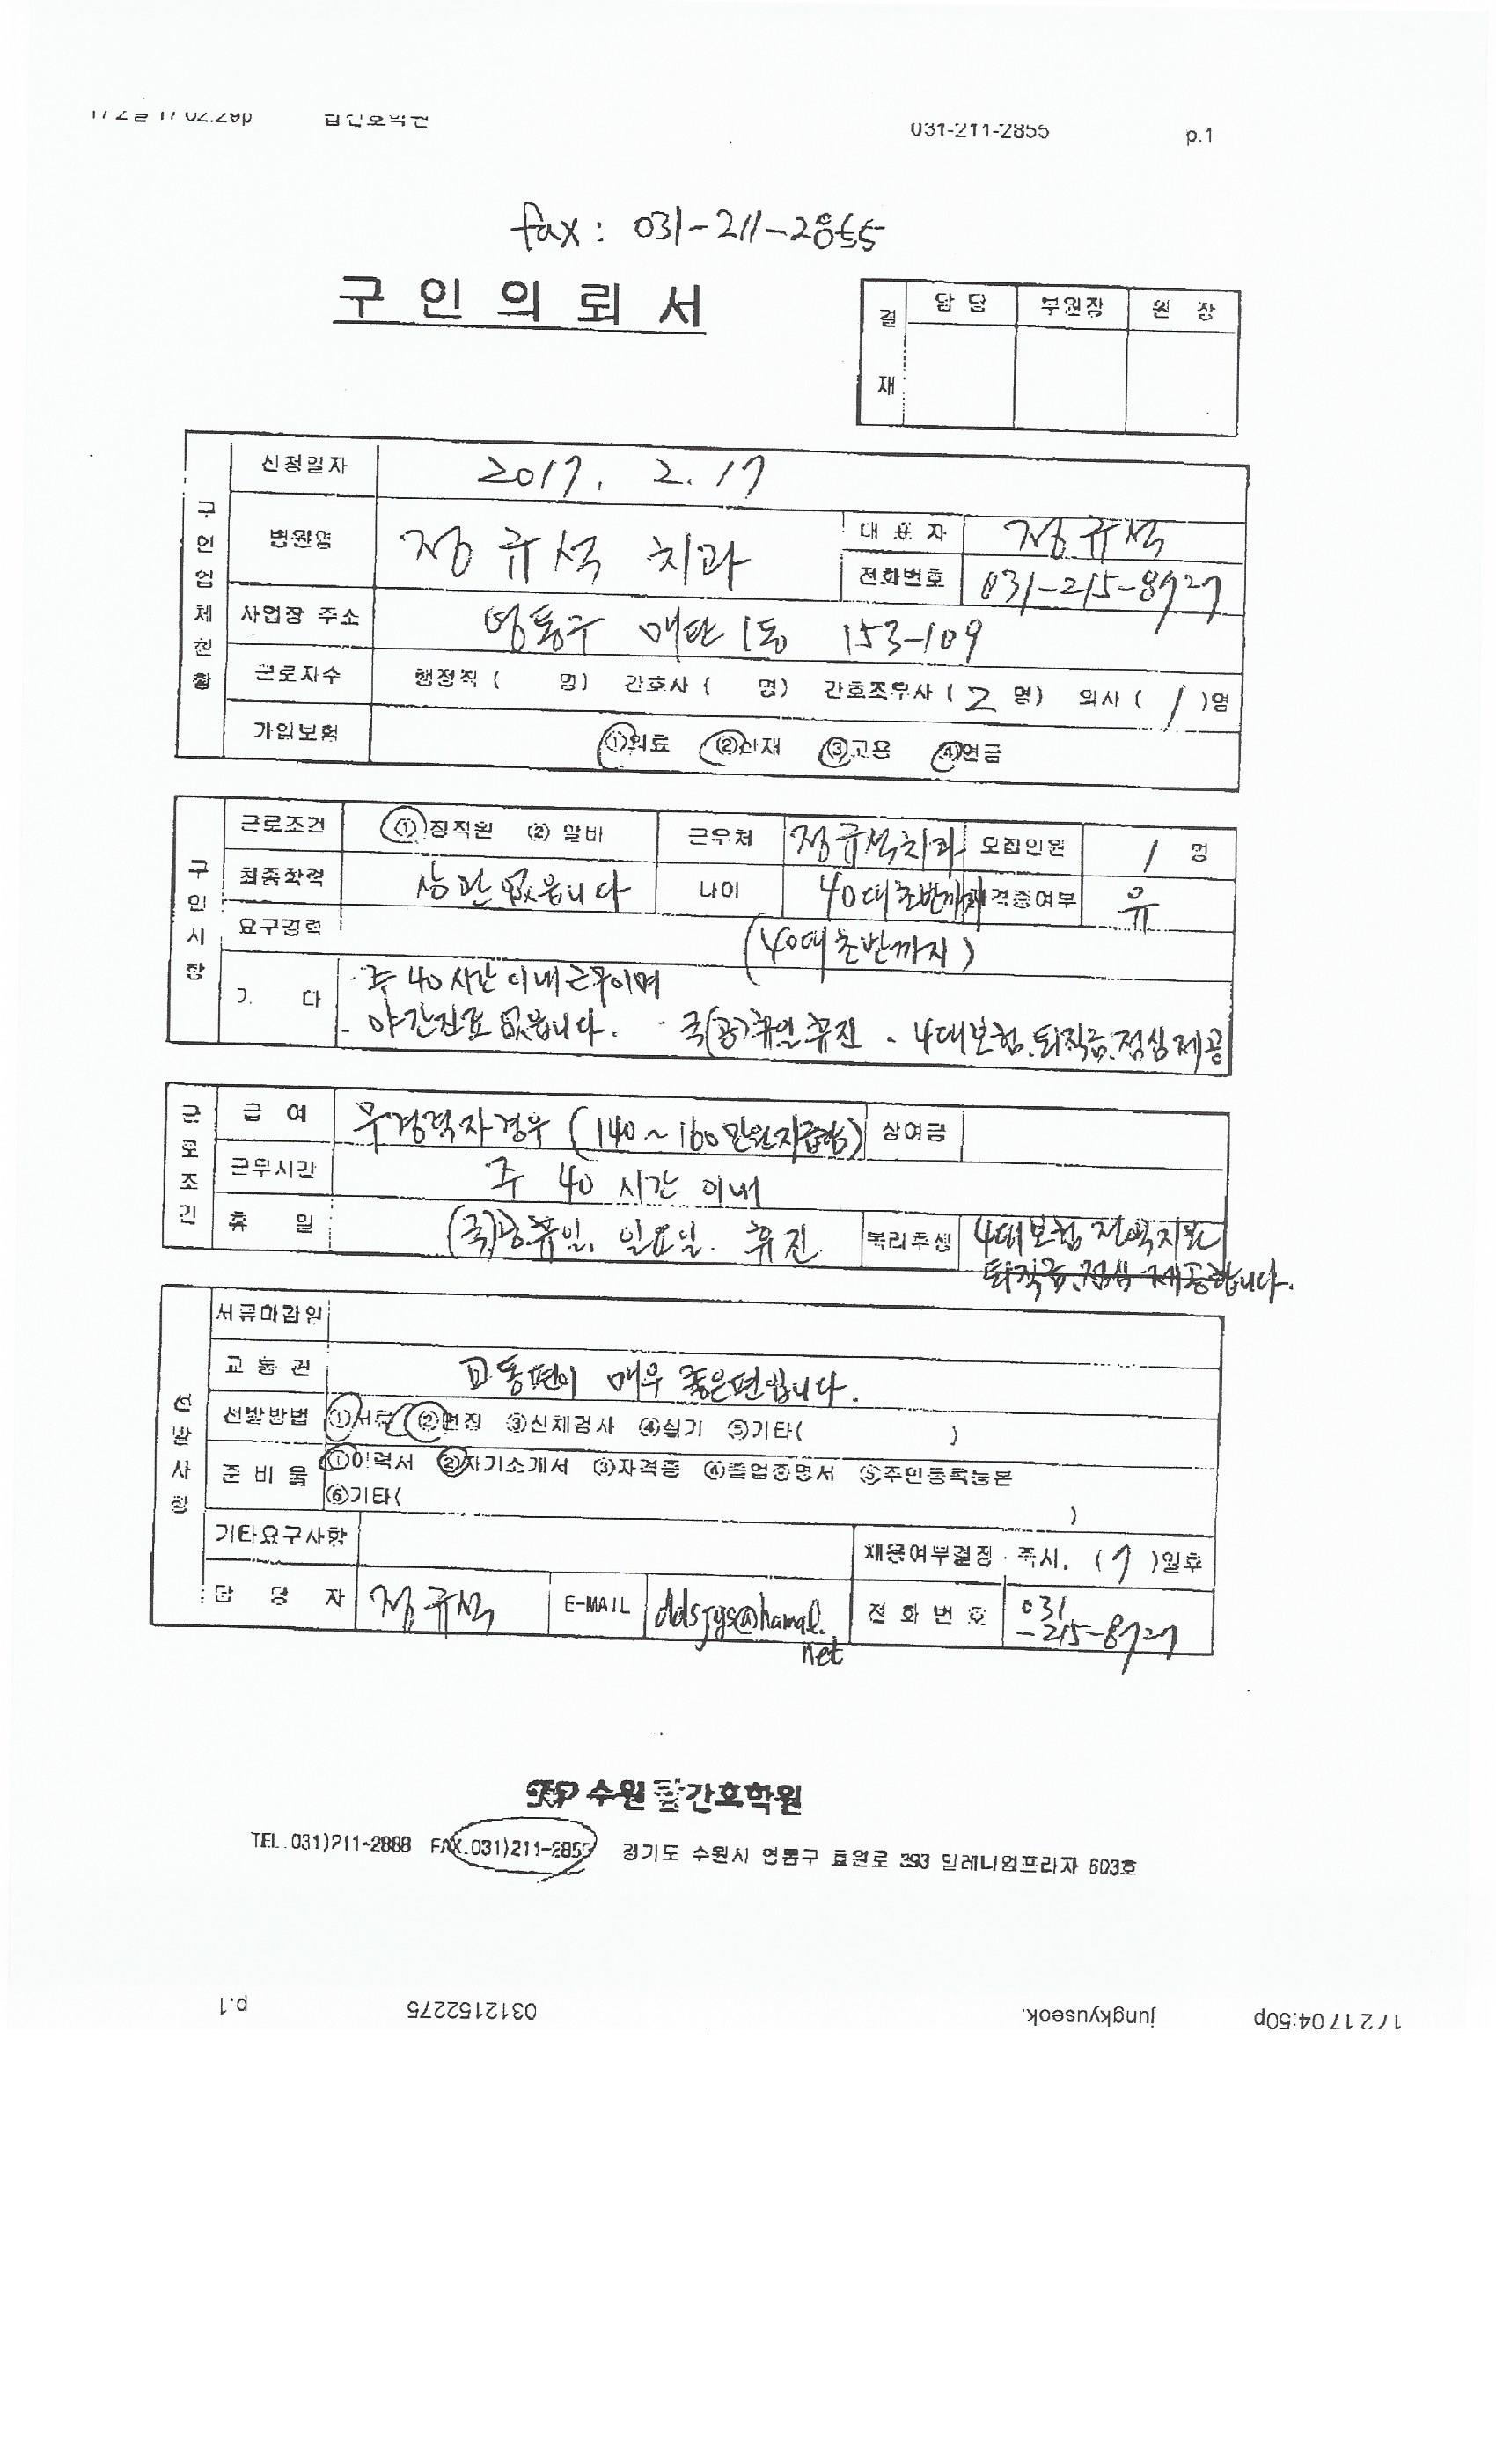 031-211-2855 p.1
fax : 031-211-2855
구 인 의 뢰 서
결 재 담 당 부원장 원 장
구인업체현황
신청일자 2017. 2. 17
병원명 정규석 치과 대 표 자 정규석
전화번호 031-215-8727
사업장 주소 영통구 매탄1동 153-109
근로자수 행정직 ( 명) 간호사 ( 명) 간호조무사 ( 2 명) 의사 ( 1 )명
가입보험 ①의료 ②산재 ③고용 ④연금
구인사항
근로조건 ① 정직원 ② 알바 근무처 정규석치과 모집인원 1 명
최종학력 상관없읍니다 나이 40대초반까지 자격증여부 유
요구경력 (40대 초반까지)
기 다 - 주 40시간 이내 근무이며
- 야간진료 없읍니다. - 국(공)휴일 휴진 - 4대보험, 퇴직금, 점심제공
근로조건
급 여 무경력자경우 (140~160만원지급함) 상여금
근무시간 주 40 시간 이내
휴 일 (국)공휴일, 일요일. 휴진 복리후생 4대보험 전액지원
퇴직금, 점심 제공합니다.
선발사항
서류마감일
교 통 편 교통편이 매우 좋은편입니다.
선발방법 ①서류 ②면접 ③신체검사 ④실기 ⑤기타( )
준 비 물 ①이력서 ②자기소개서 ③자격증 ④졸업증명서 ⑤주민등록등본
⑥기타( )
기타요구사항 채용여부결정 · 즉시, ( 7 )일후
담 당 자 정규석 E-MAIL ddsjys@hanmail.net 전 화 번 호 031-215-8727
수원 간호학원
TEL.031)211-2888 FAX.031)211-2855 경기도 수원시 영통구 효원로 393 밀레니엄프라자 603호
17 2 17 04:50p jungkyuseok. 0312152275 p.1